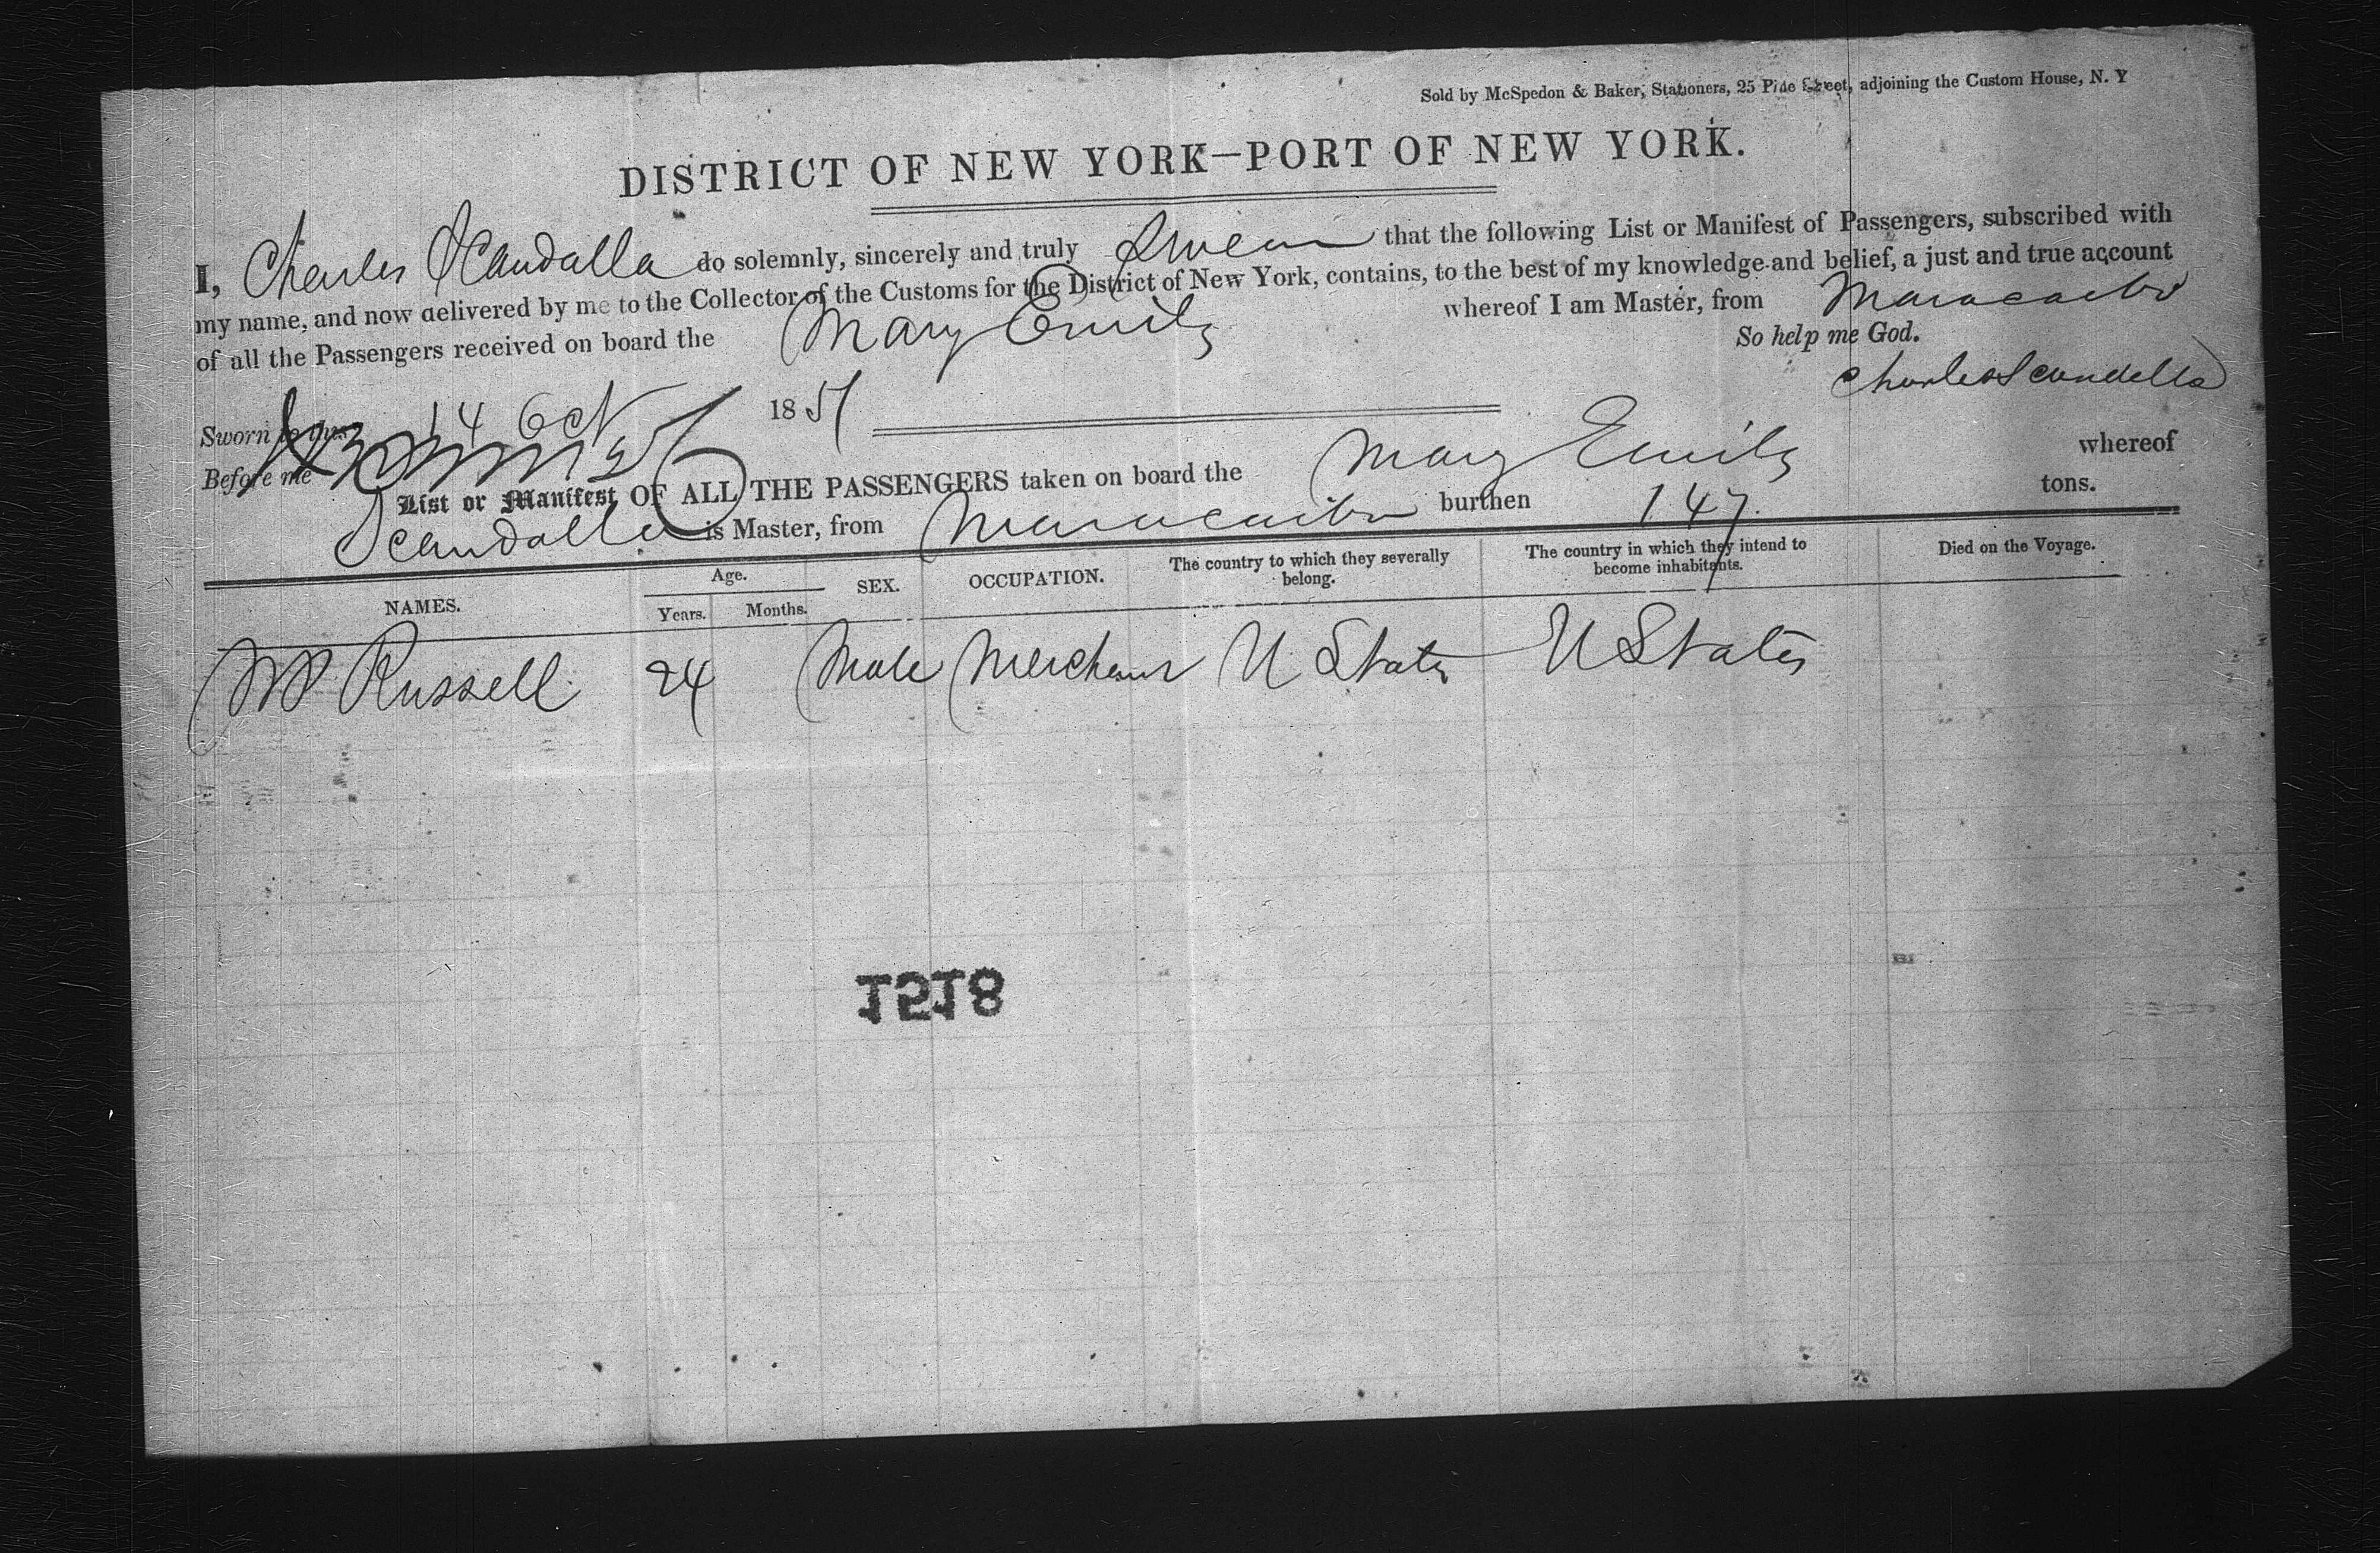 Sold by McSpedon & Baker, Stationers, 25 Pine Street, adjoining the Custom House, N. Y
DISTRICT OF NEW YORK—PORT OF NEW YORK.
I, Charles Scandalla do solemnly, sincerely and truly Swear that the following List or Manifest of Passengers, subscribed with
my name, and now delivered by me to the Collector of the Customs for the District of New York, contains, to the best of my knowledge and belief, a just and true account
of all the Passengers received on board the Mary Emily whereof I am Master, from Maracaibo
So help me God.
Charles Scandella
Sworn to this 14 Oct 1851
Before me
List or Manifest OF ALL THE PASSENGERS taken on board the Mary Emily whereof
Scandalla is Master, from Maracaibo burthen 147. tons.
NAMES. Age. Years. Months. SEX. OCCUPATION. The country to which they severally belong. The country in which they intend to become inhabitants. Died on the Voyage.
Russell 24 Male Merchant U States U States
1518